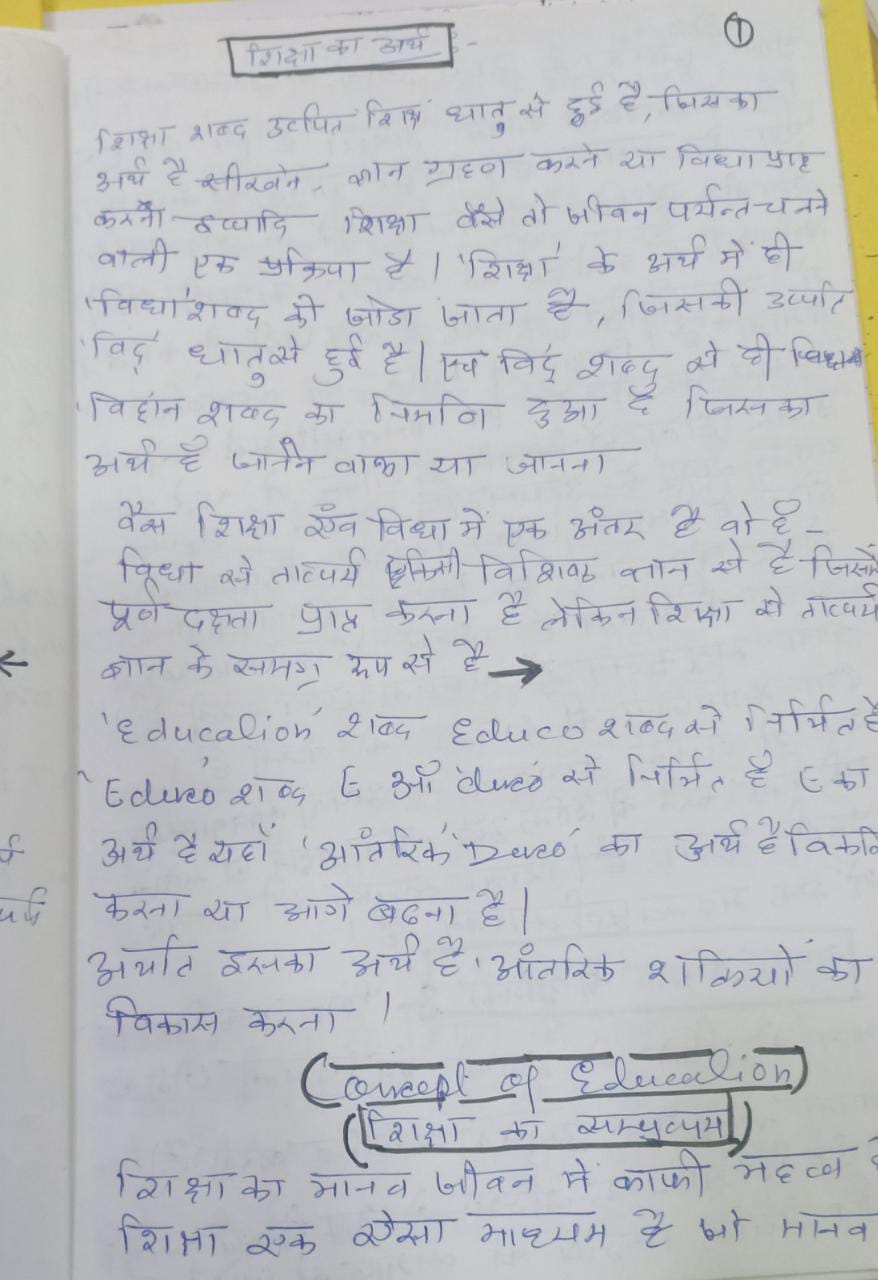 शिक्षा का अर्थ :-
①
शिक्षा शब्द उत्पति शिक्ष धातु से हुई है, जिसका
अर्थ है सीखने, ज्ञान ग्रहण करने या विधा प्राप्त
करना इत्यादि शिक्षा वैसे तो जीवन पर्यन्त चलने
वाली एक प्रक्रिया है । 'शिक्षा' के अर्थ में ही
'विधा' शब्द को जोडा जाता है, जिसकी उत्पति
'विद्' धातु से हुई है । एवं विद् शब्द से ही
'विद्वान शब्द का निर्माण हुआ है जिसका
अर्थ है जानने वाला या जानना
वैस शिक्षा एंव विधा में एक अंतर है वो है -
विधा से तात्पर्य किसी विशिष्ट ज्ञान से है जिसमें
पूर्ण दक्षता प्राप्त करना है लेकिन शिक्षा से तात्पर्य
ज्ञान के समग्र रूप से है →
'Education' शब्द Educo शब्द से निर्मित है
'Educo' शब्द E औ 'duco' से निर्मित है E का
अर्थ है यहाँ 'आंतरिक' 'Duco' का अर्थ है
करना या आगे बढना है |
अर्थात इसका अर्थ है 'आंतरिक शक्तियों का
विकास करना ।
(Concept of Education)
(शिक्षा का सम्प्रत्यय)
शिक्षा का मानव जीवन में काफी महत्व
शिक्षा एक ऐसा माध्यम है जो मानव